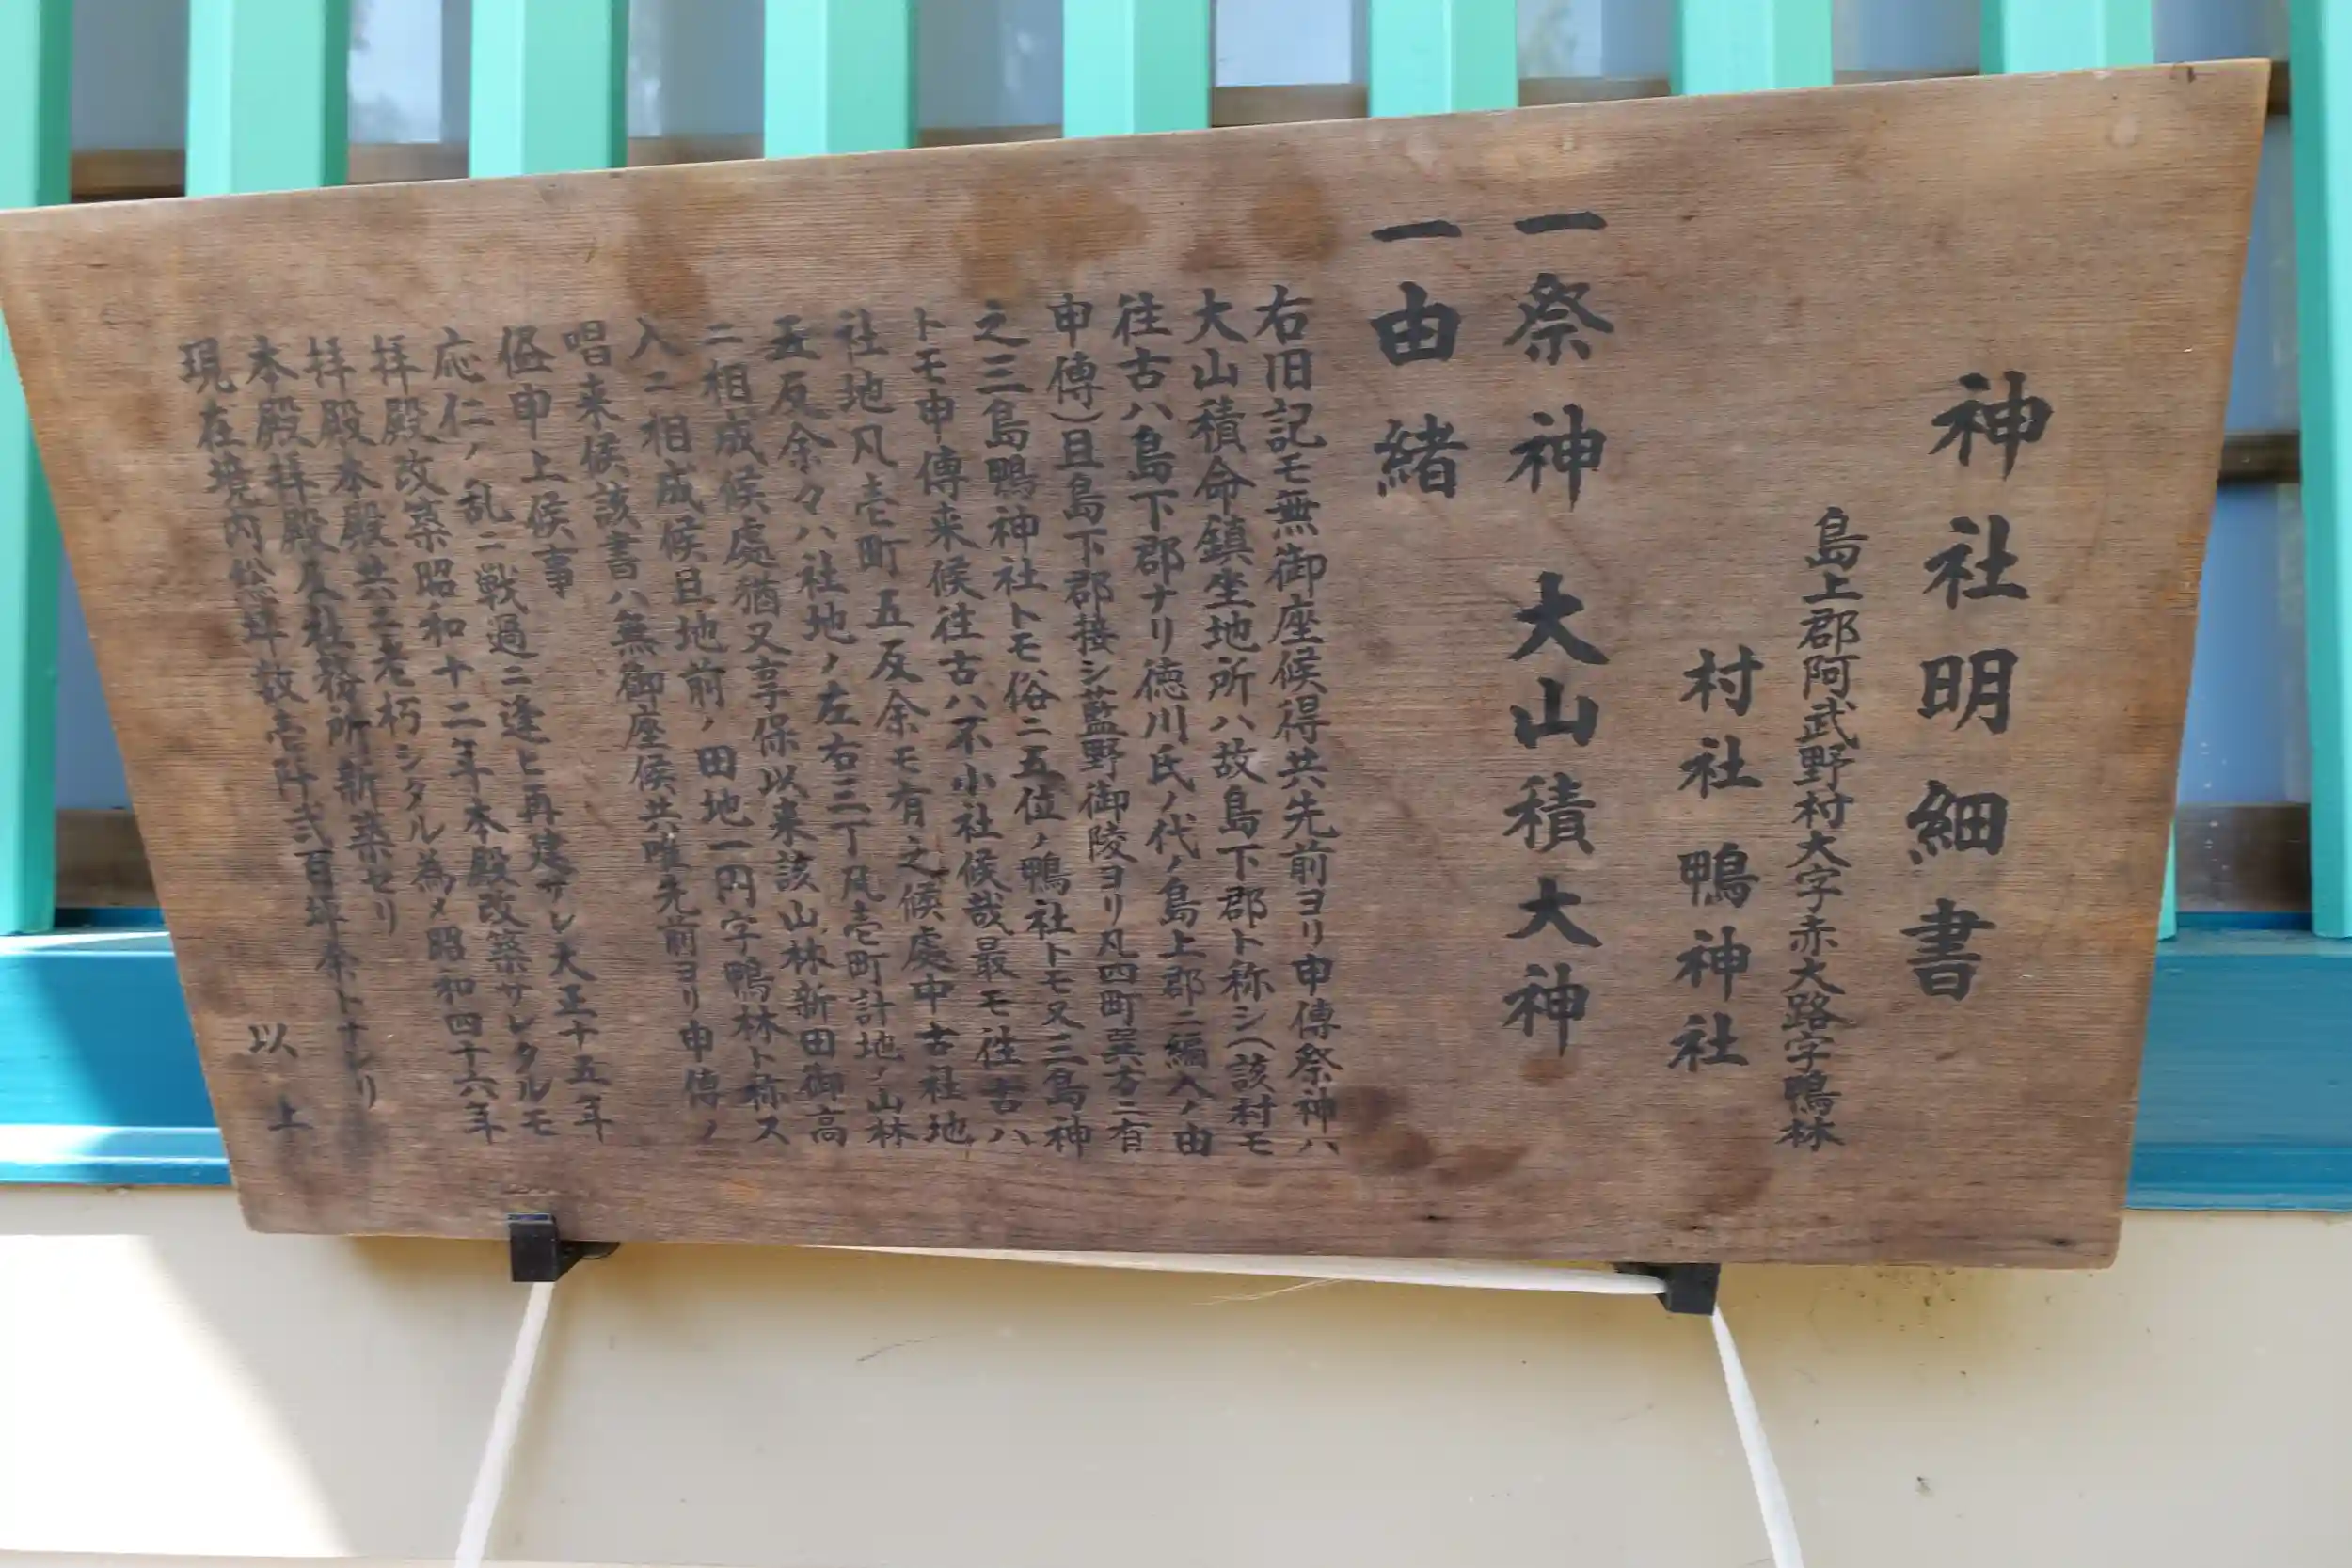 神社明細書
島上郡阿武野村大字赤大路字鴨林
村社 鴨神社
一祭神 大山積大神
一由緒
右旧記モ無御座候得共先前ヨリ申傳祭神ハ
大山積命鎮坐地所ハ故島下郡ト称シ(該村モ
往古ハ島下郡ナリ徳川氏ノ代ノ島上郡ニ編入ノ由
申傳)且島下郡接シ藍野御陵ヨリ凡四町巽方ニ有
之三島鴨神社トモ俗ニ五位ノ鴨社トモ又三島神
トモ申傳来候往古ハ不小社候哉最モ往古ハ
社地凡壱町五反余モ有之候處中古社地
五反余々ハ社地ノ左右三丁凡壱町計地ノ山林
ニ相成候處猶又享保以来該山林新田御高
入ニ相成候且地前ノ田地一円字鴨林ト称ス
唱来候該書ハ無御座候共唯先前ヨリ申傳ノ
侭申上候事
応仁ノ乱ニ戦過ニ逢ヒ再建サレ大正十五年
拝殿改築昭和十二年本殿改築サレタルモ
拝殿本殿共ニ老朽シタル為メ昭和四十六年
本殿拝殿及社務所新築セリ
現在境内総坪数壱阡弐百坪余トナレリ
以上